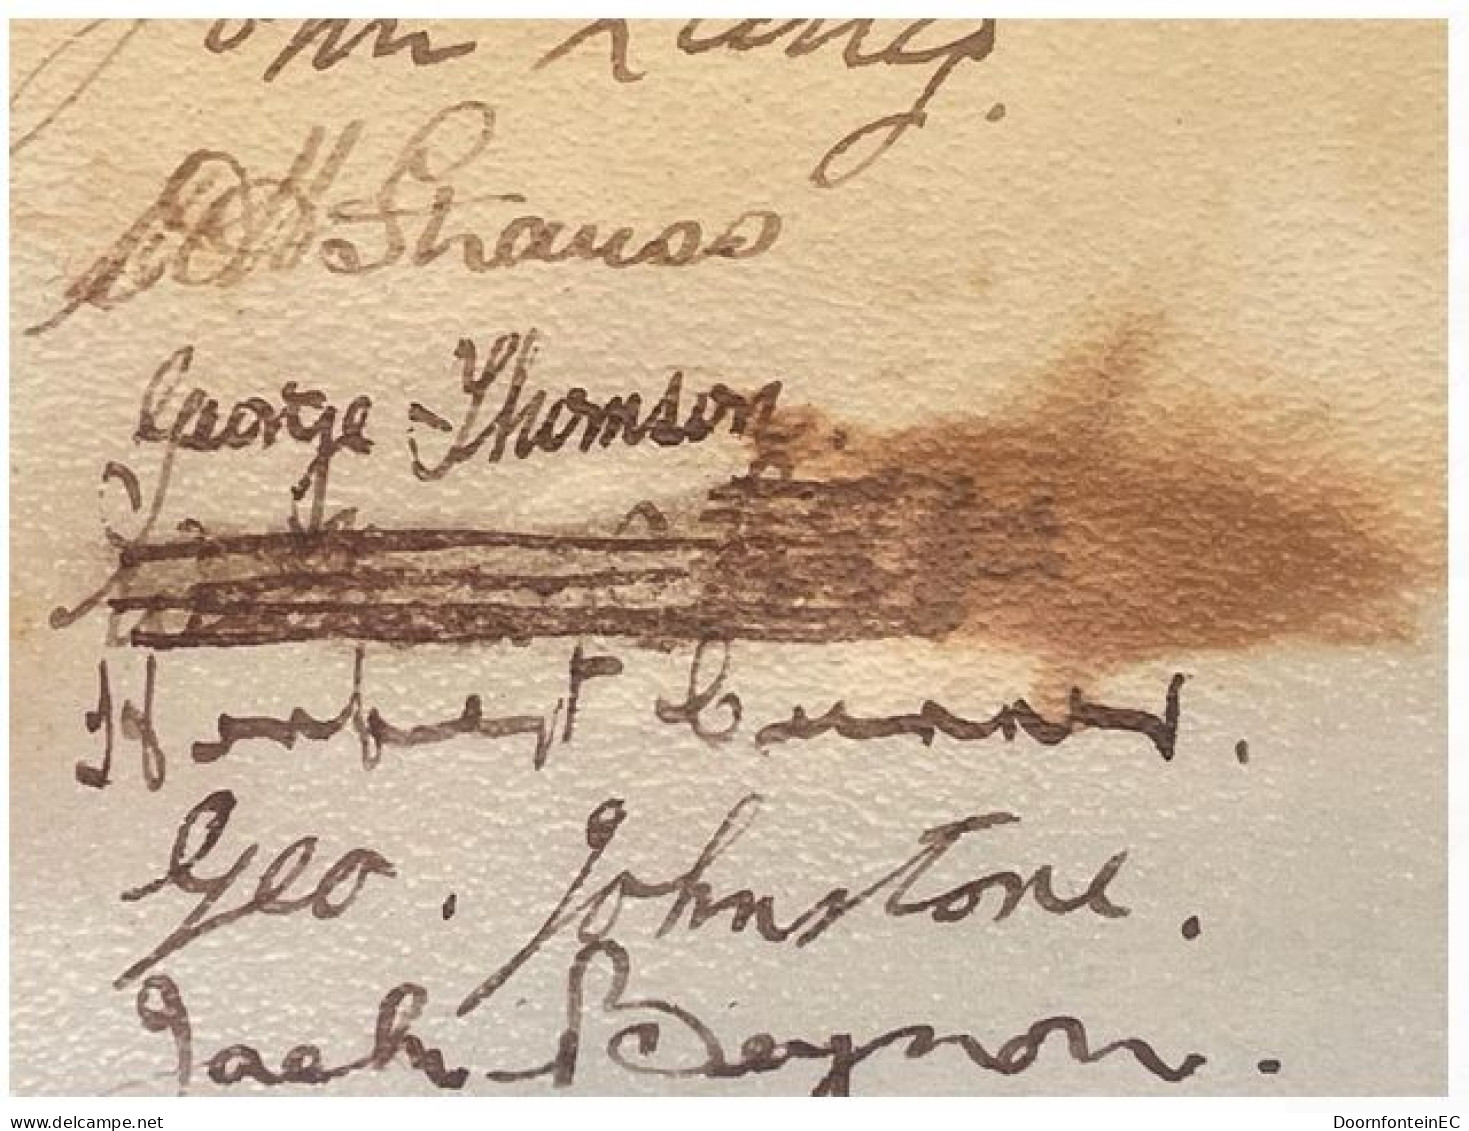 John Lang.
Strauss
George Thomson.
Herbert
Geo. Johnstone.
Jack Beynon.
www.delcampe.net
DoornfonteinEC